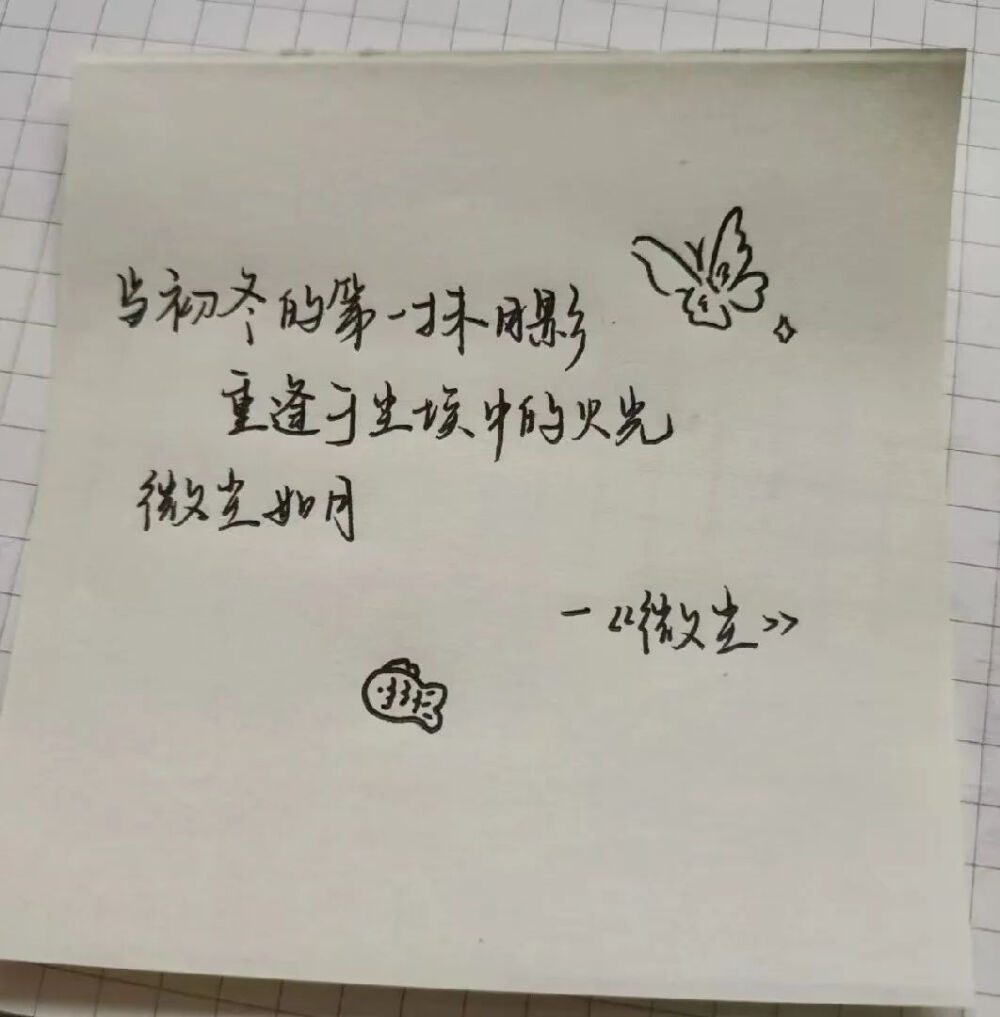 与初冬的第一抹月影
重逢于尘埃中的火光
微尘如月
—《微尘》